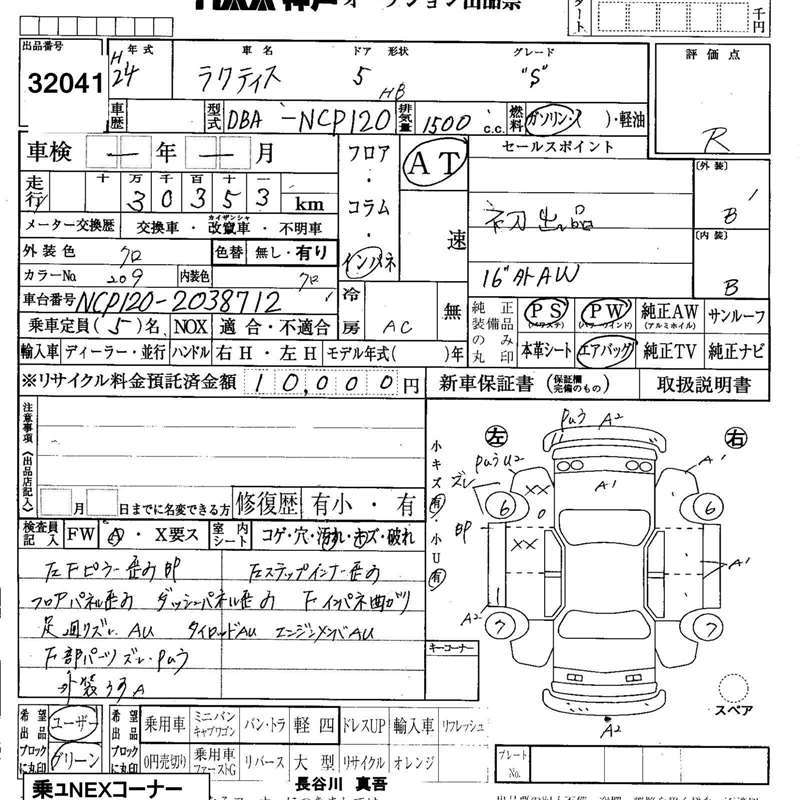 神戸 オークション出品票
千円
出品番号
32041
年式 車名 ドア 形状 グレード
H24 ラクティス 5 HB "S"
車歴 型式 DBA -NCP120 排気量 1500 c.c. 燃料 ガソリン・( )・軽油
評価点
R
車検 ー年ー月
フロア・コラム・インパネ
AT
速
セールスポイント
初出品
16"外AW
(外装)
B
(内装)
B
走行 十 万 千 百 十 一
3 0 3 5 3 km
メーター交換歴 交換車・改竄車・不明車
カイザンシャ
外装色 クロ 色替 無し・有り
カラーNo. 209 内装色 クロ
車台番号 NCP120-2038712
冷房 AC 無
乗車定員(5)名 NOX 適合・不適合
輸入車 ディーラー・並行 ハンドル 右H・左H モデル年式( )年
純正装備品のみ丸印
PS (パワステ) PW (パワーウインド) 純正AW (アルミホイル) サンルーフ
本革シート エアバッグ 純正TV 純正ナビ
※リサイクル料金預託済金額 10,000円
新車保証書 (保証欄完備のもの) 取扱説明書
注意事項(出品店記入)
月 日までに名変できる方 修復歴 有小・有
検査員記入 FW Ⓐ・X要ス 室内シート コゲ・穴・汚れ・キズ・破れ
左Fピラー歪み 凹 左ステップインナー歪み
フロアパネル歪み ダッシュパネル歪み F インパネ曲がり
足廻りズレ、AU タイロッドAU エンジンメンバAU
F部パーツズレ・ワレ
外装うすA
小キズ有・小U有
左 右
A2
U2
ズレ
XX
A1
A1
6 6
凹
XX
A1
A2
7 7
A2
キーコーナー
スペア
希望出品ブロックに丸印
ユーザー
グリーン
希望出品ブロックに丸印
乗用車 ミニバンキャブワゴン バン・トラ 軽四 ドレスUP 輸入車 リフレッシュ
0円売切り 乗用車ファーストG リバース 大型 リサイクル オレンジ
プレートNo.
乗ユNEXコーナー
長谷川 真吾